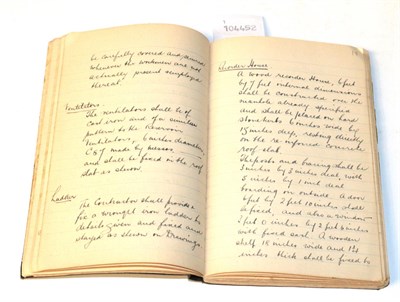 104452
be carefully covered and
whenever the workmen are not
actually present employed
thereat.
Ventilators.
The ventilators shall be of
cast iron and of a similar
pattern to the Reservoir
Ventilators, 6 inches diameter,
made by
and shall be fixed in the roof
slab as shown.
Ladder
The Contractor shall provide &
fix a wrought iron ladder to
details given and fixed and
shaped as shown on Drawings
Recorder House
A wood recorder House, 6 feet
by 7 feet internal dimensions
shall be constructed over the
manhole already specified
and shall be placed on hard
stone kerbs 6 inches wide by
inches deep, resting directly
on the reinforced concrete
roof slab.
The posts and bearing shall be
3 inches by 3 inches deal, with
5 inches by 1 inch deal
boarding on outside. A door
6 feet by 2 feet 10 inches shall
be fixed, and also a window
2 feet 0 inches by 2 feet 6 inches
with fixed sash. A wooden
shelf 18 inches wide and 1¼
inches thick shall be fixed to